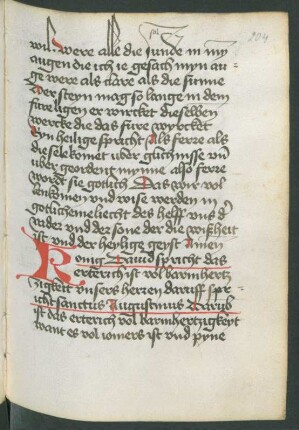 204
wil were alle die sunde in my
augen die ich ie gesach myn au-
ge were als clare als die sunne
Der steyn mag so lange in dem
fure ligen er wircket die selben
wercke die das fure wyrcket
eyn heilige spricht Als ferre als
die sele komet uber glichnisse vn
uber geordent mynne also ferre
wordt sie gotlich Das wir vol
lenkomen vnd wise werden in
gotlicheme liecht des helff vns d
vader vnd der sone der die wißheit
ist vnd der heylige geyst Amen
Konig Dauid spricht das
erterich ist vol barmhertz
zigkeit vnsers herren daruff spr
icht sanctus Augustinus Warub
ist das erterich vol barmhertzigkeyt
want es vol iomers ist vnd pyne